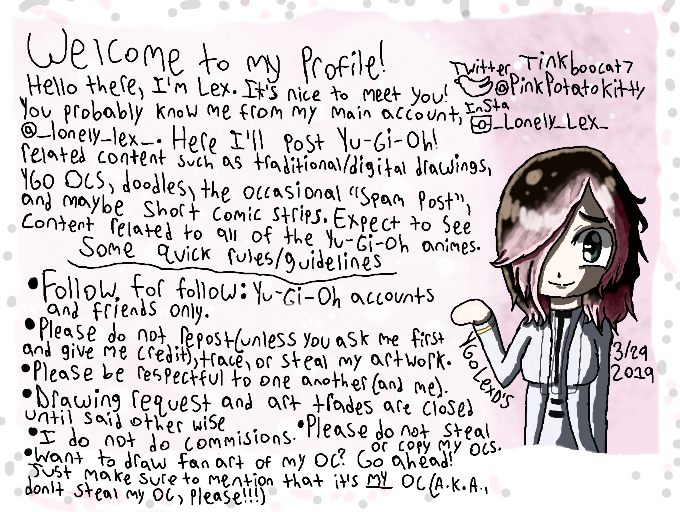 Welcome to my Profile!
Hello there, I'm Lex. It's nice to meet you!
You probably know me from my main account,
@_lonely_lex_. Here I'll post Yu-Gi-Oh!
related content such as traditional/digital drawings,
YGO OCS, doodles, the occasional "Spam Post",
and maybe short comic strips. Expect to see
content related to all of the Yu-Gi-Oh animes.
Twitter Tinkboocat7
@PinkPotatokitty
Insta
_Lonely_Lex_
Some quick rules/guidelines
•Follow for follow: Yu-Gi-Oh accounts
and friends only.
•Please do not repost(unless you ask me first
and give me credit), trace, or steal my artwork.
•Please be respectful to one another (and me).
•Drawing request and art trades are closed
until said other wise
•I do not do commisions. •Please do not steal
or copy my OCs.
•Want to draw fan art of my OC? Go ahead!
Just make sure to mention that it's my OC (A.K.A.,
don't steal my OC, please!!!)
YGOLexDS
3/29
2019